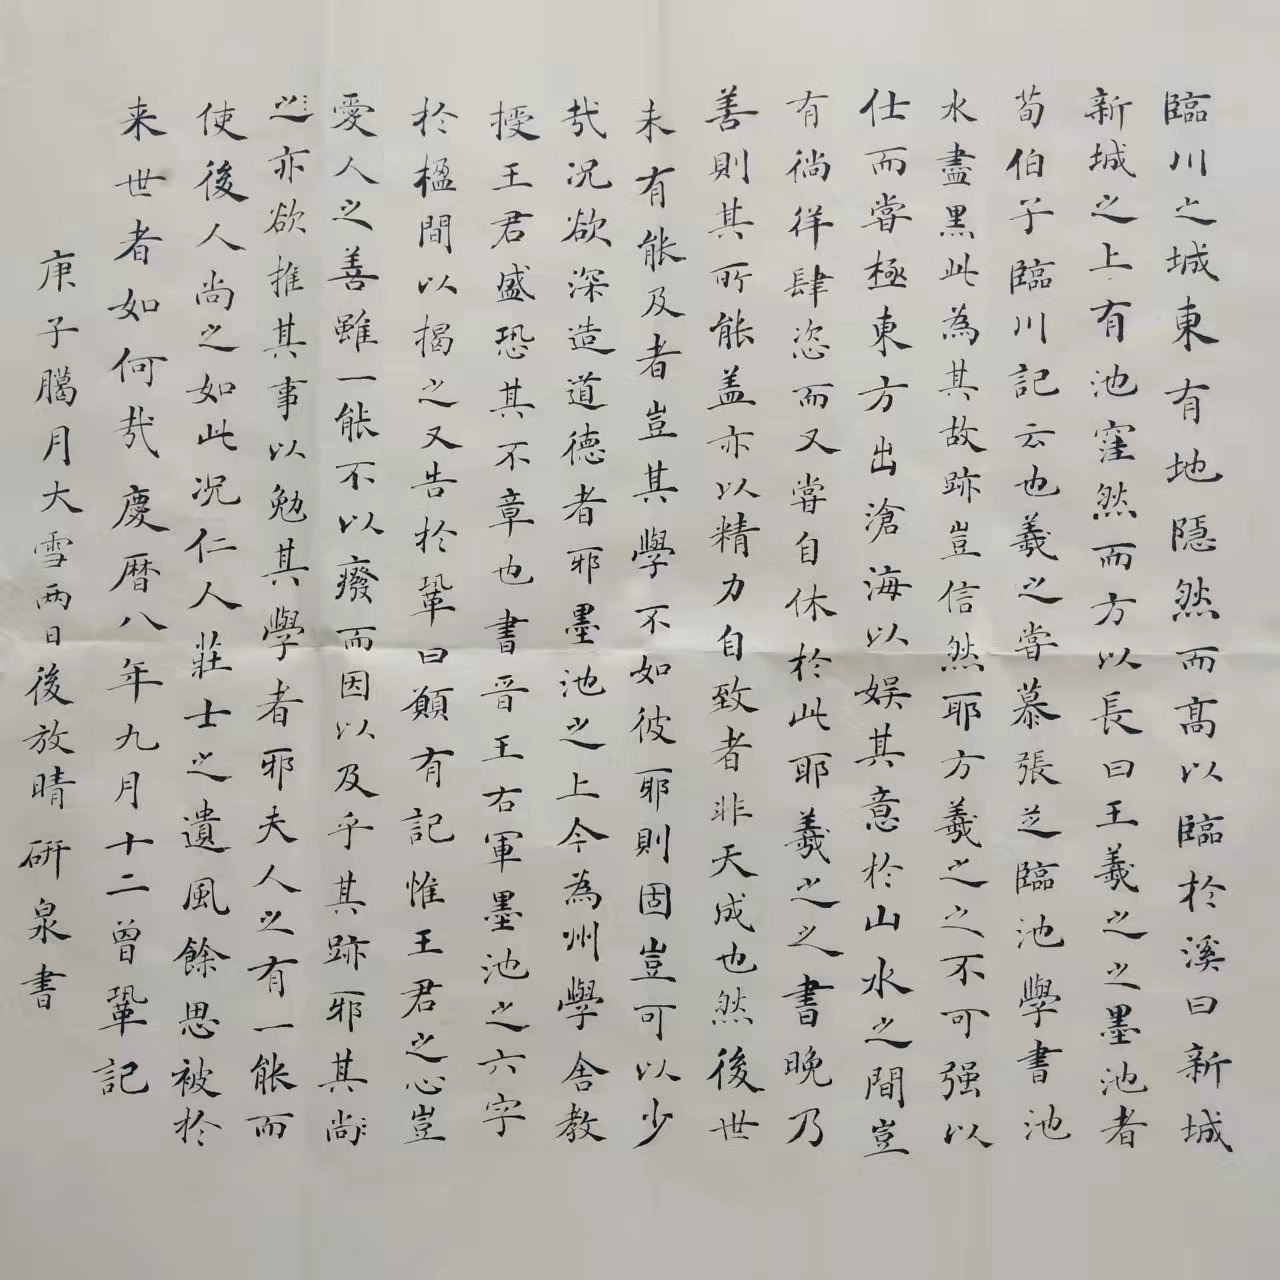 臨川之城東有地隱然而高以臨於溪曰新城
新城之上有池窪然而方以長曰王羲之之墨池者
荀伯子臨川記云也羲之嘗慕張芝臨池學書池
水盡黑此為其故跡豈信然耶方羲之之不可强以
仕而嘗極東方出滄海以娱其意於山水之間豈
有徜徉肆恣而又嘗自休於此耶羲之之書晚乃
善則其所能盖亦以精力自致者非天成也然後世
未有能及者豈其學不如彼耶則固豈可以少
哉況欲深造道德者邪墨池之上今為州學舍教
授王君盛恐其不章也書晋王右軍墨池之六字
於楹間以揭之又告於鞏曰願有記惟王君之心豈
愛人之善雖一能不以癈而因以及乎其跡邪其尚
之亦欲推其事以勉其學者邪夫人之有一能而
使後人尚之如此况仁人莊士之遺風餘思被於
来世者如何哉慶曆八年九月十二曾鞏記
庚子臈月大雪兩日後放晴研泉書